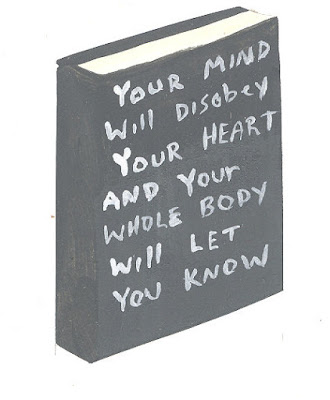 YOUR MIND
Will DISObEY
YOUR HEART
AND YOUR
WHOLE BODY
Will LET
YOU KNOW